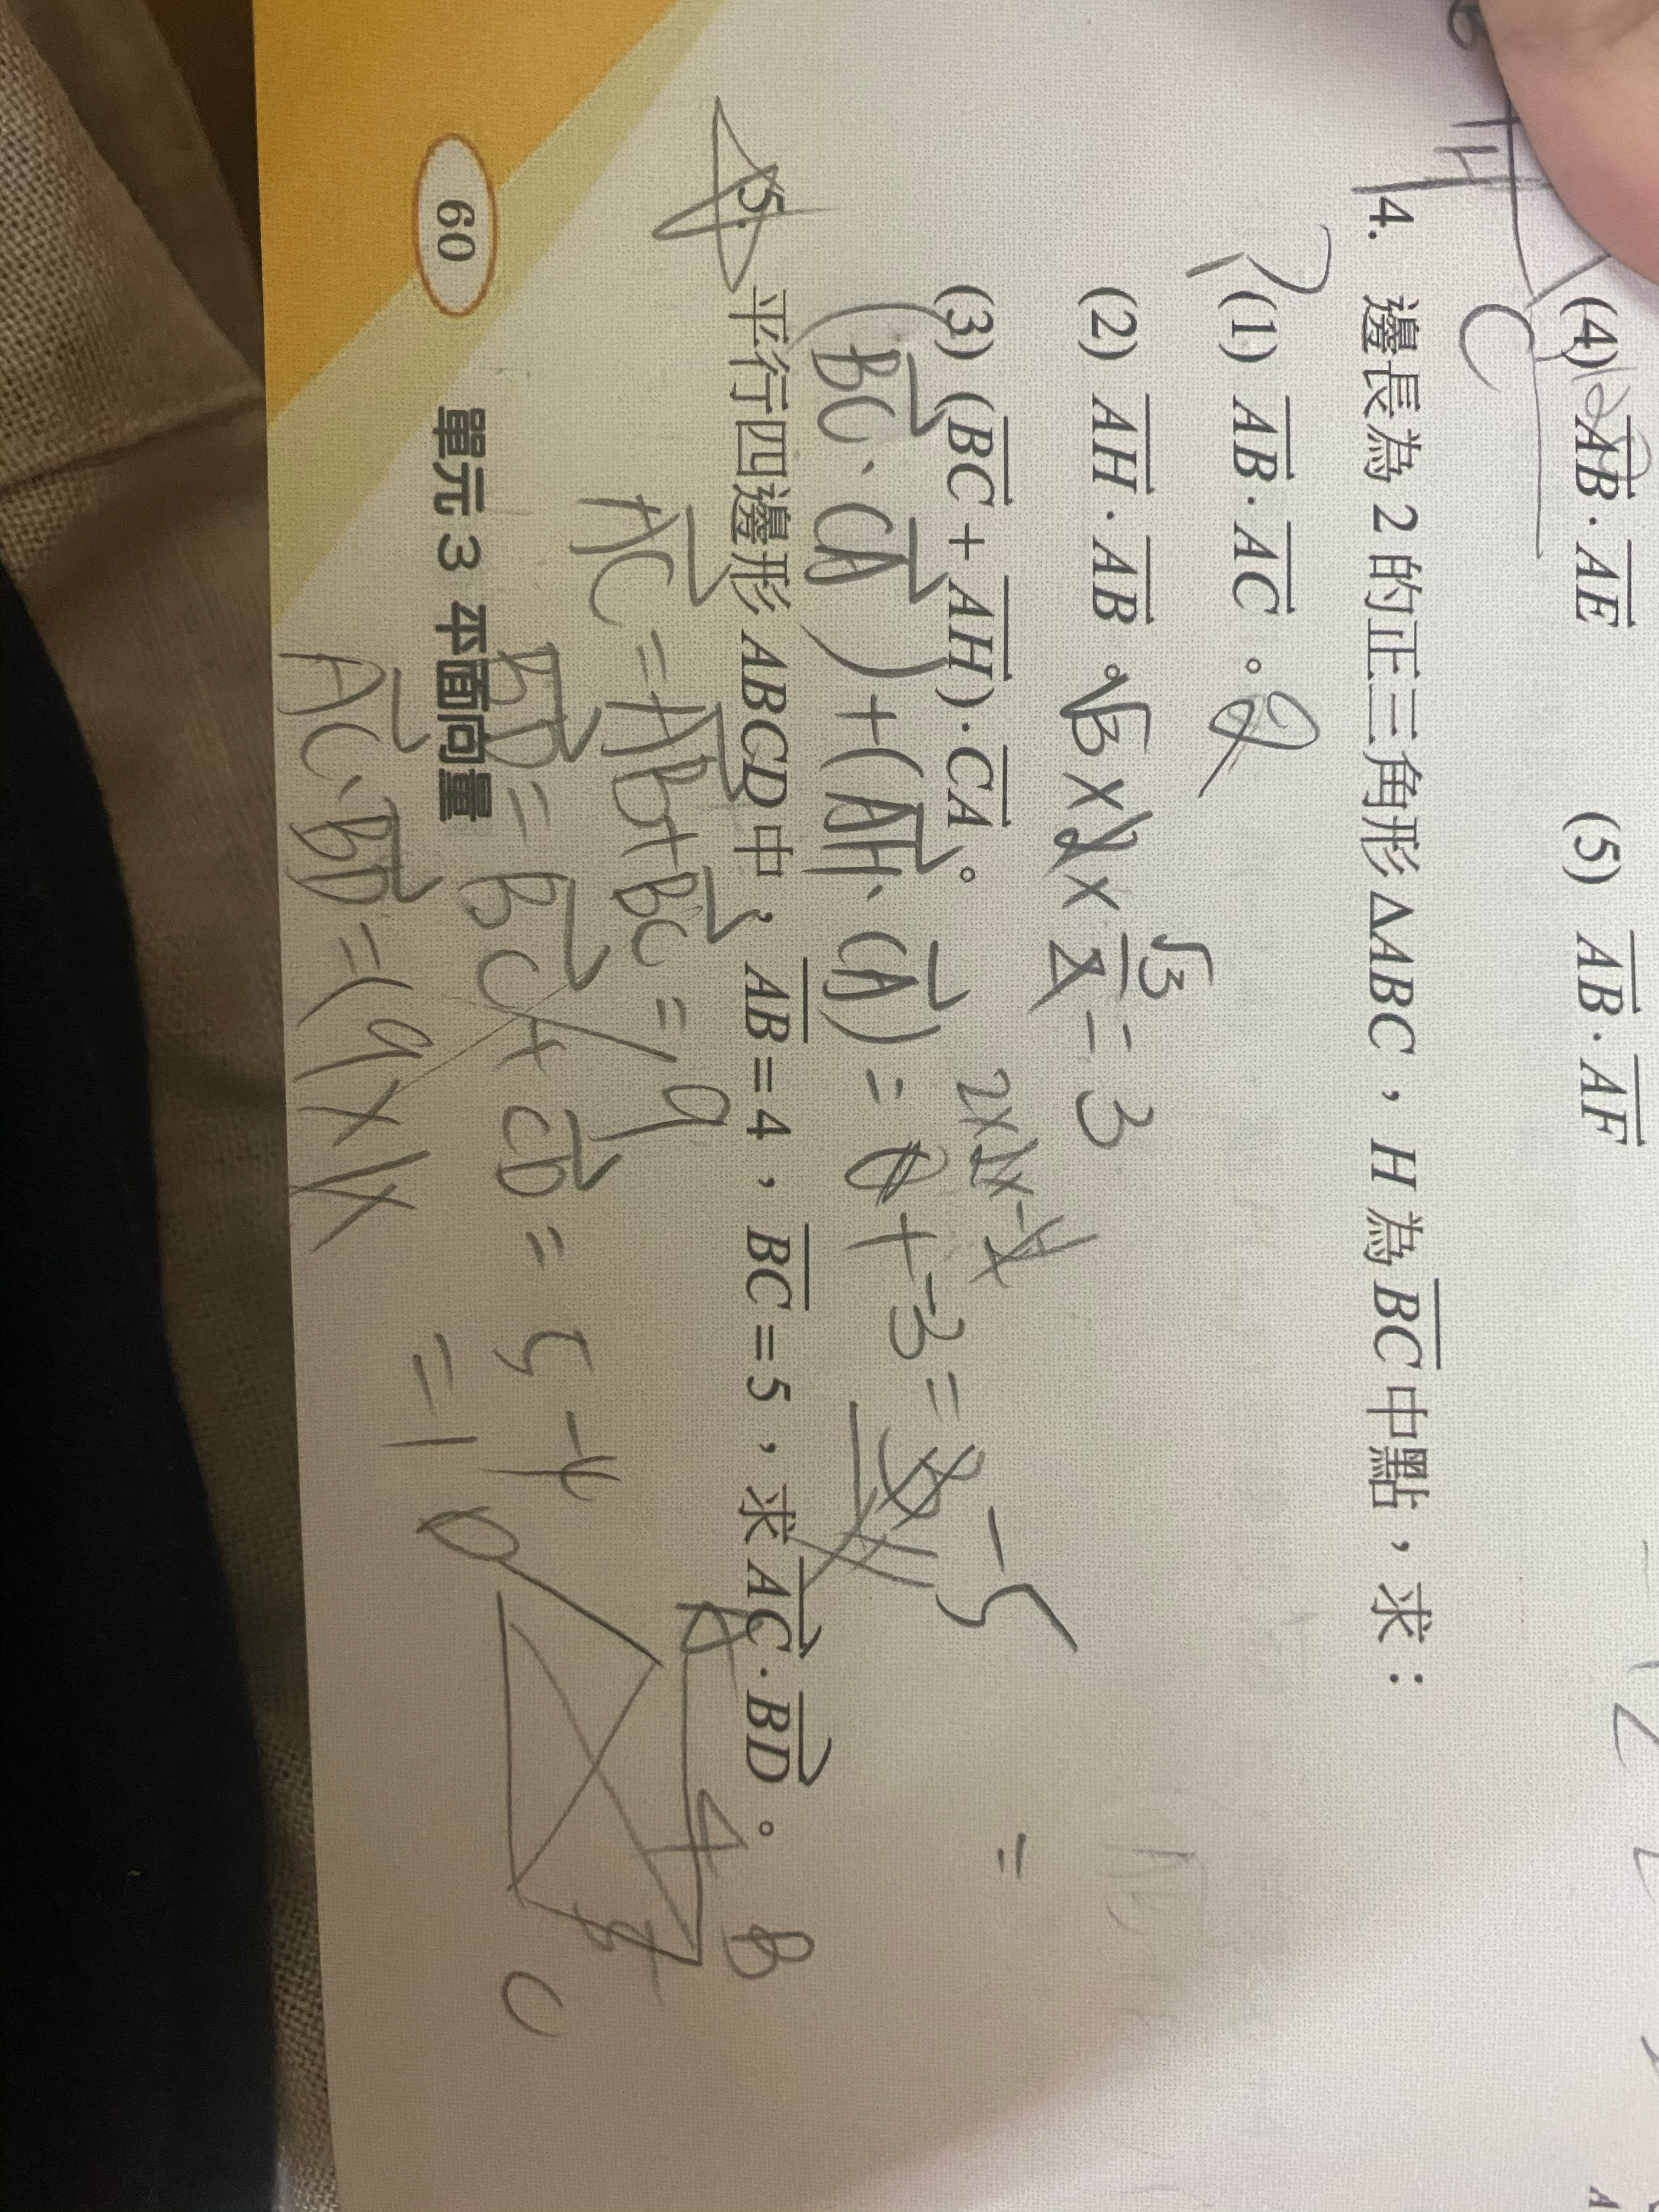 (4) AB · AE (5) AB · AF
C
4. 邊長為 2 的正三角形 ΔABC，H 為 BC 中點，求：
(1) AB · AC。2
(2) AH · AB。√3 × 2 × √3/2 = 3
(3) (BC + AH) · CA。
(BC、CA) + (AH、CA) = + -3 = -5
5. 平行四邊形 ABCD 中，AB = 4，BC = 5，求 AC · BD。
AC = AB + BC = 9
BD = BC + CD = 5 - 4 = 1
AC、BD = (9 × 1 ×
A 4 B
D C
60 單元 3 平面向量